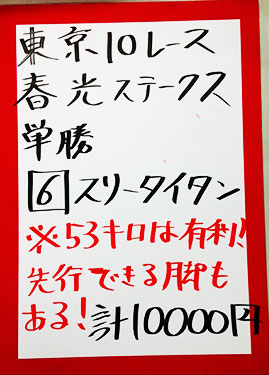 東京10レース
春光ステークス
単勝
6 スリータイタン
※53キロは有利!
先行できる脚も
ある! 計10000円